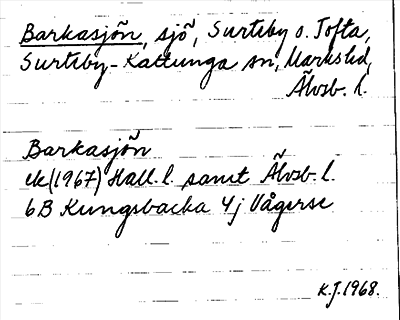 Barkasjön, sjö, Surteby o. Tofta,
Surteby-Kattunga sn, Marks hd,
Älvsb. l.
Barkasjön
ek(1967) Hall. l. samt Älvsb. l.
6B Kungsbacka 4j Vågerse
K.J. 1968.